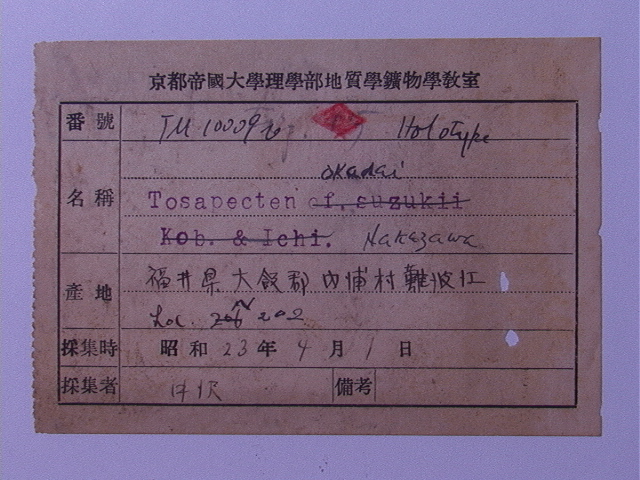 京都帝國大學理學部地質學鑛物學敎室
番號 JM 10009 Holotype
okadai
名稱 Tosapecten cf. suzukii
Kob. & Ichi. Nakazawa
產地 福井県大飯郡内浦村難波江
Loc. 202
採集時 昭和 23 年 4 月 1 日
採集者 中沢 備考